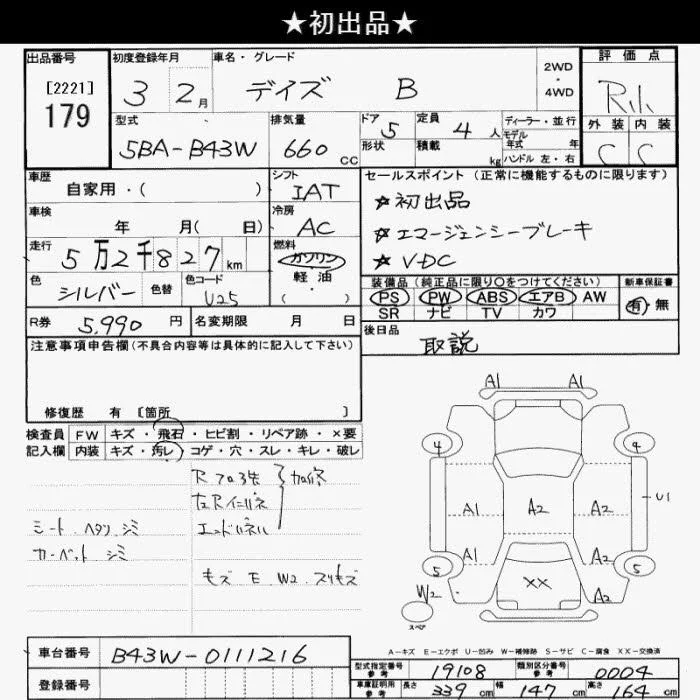 ★初出品★
出品番号 初度登録年月 車名・グレード 評価点
[2221]
179
3 2月 デイズ B
2WD
・
4WD
外装 内装
C C
型式 排気量 ドア 定員 ディーラー・並行
5BA-B43W 660 CC 5 4人
モデル年式 年
形状 積載 kg ハンドル 左・右
車歴 シフト セールスポイント(正常に機能するものに限ります)
自家用・( ) IAT
★初出品
車検 冷房
年 月( 日) AC
★エマージェンシーブレーキ
走行 燃料
5万2千827km ガソリン
★VDC
軽・油
( )
色 色替 色コード
シルバー U25
装備品(純正品に限り○をつけてください) 新車保証書
PS PW ABS エアB AW 有・無
SR ナビ TV カワ
R券 5,990円 名変期限 月 日
後日品
取説
注意事項申告欄(不具合内容等は具体的に記入して下さい)
修復歴 有 [箇所 ]
検査員 FW キズ・飛石・ヒビ割・リペア跡・×要
記入欄 内装 キズ・汚レ・コゲ・穴・スレ・キレ・破レ
加修
シート ヘタリ シミ
カーペット シミ
A1 A1
4 4
A1 A2 A2 U1
A1 A2
5 XX 5
W2 A2
スペア
A-キズ E-エクボ U-凹み W-補修跡 S-サビ C-腐食 XX-交換済
車台番号 B43W-0111216
登録番号
型式指定番号 参考 19108 類別区分番号 参考 0004
車庫証明用 参考 長さ 339cm 幅 147cm 高さ 164cm